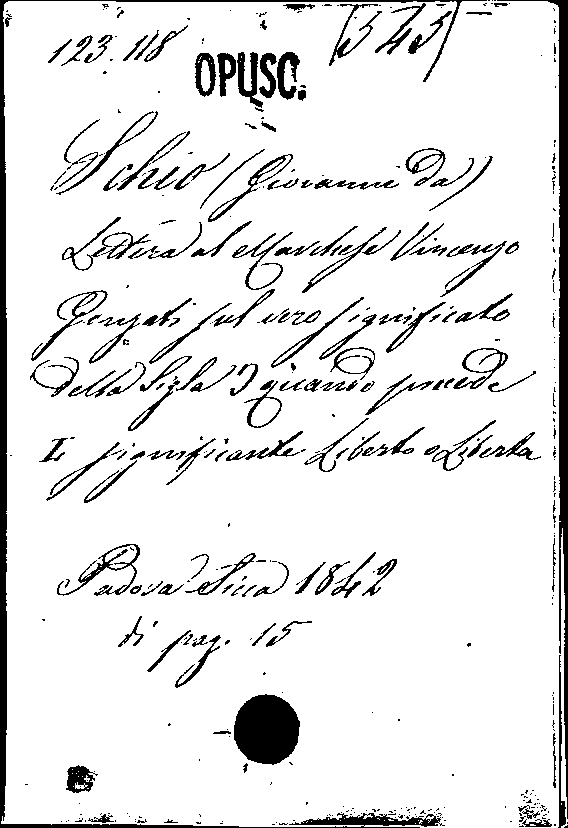 123.118 [545]
OPUSC.
Schio (Giovanni da)
Lettera al Marchese Vincenzo
Gonzati sul vero significato
della Sigla Ɔ quando precede
L significante Liberto o Liberta
Padova Sicca 1842
di pag. 15